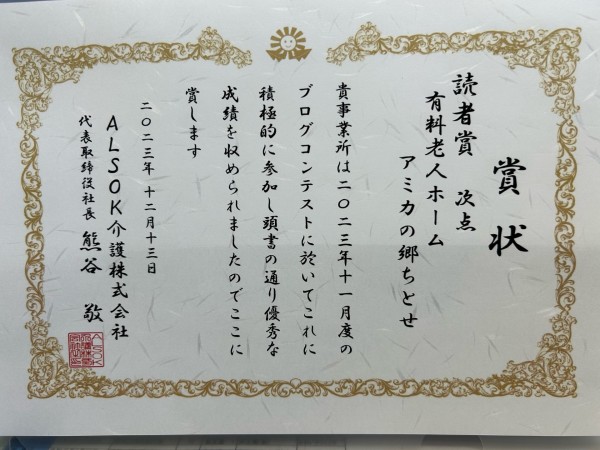 賞状
読者賞 次点
有料老人ホーム
アミカの郷ちとせ
貴事業所は二〇二三年十一月度の
ブログコンテストに於いてこれに
積極的に参加し頭書の通り優秀な
成績を収められましたのでここに
賞します
二〇二三年 十二月十三日
ALSOK介護株式会社
代表取締役社長 熊谷 敬